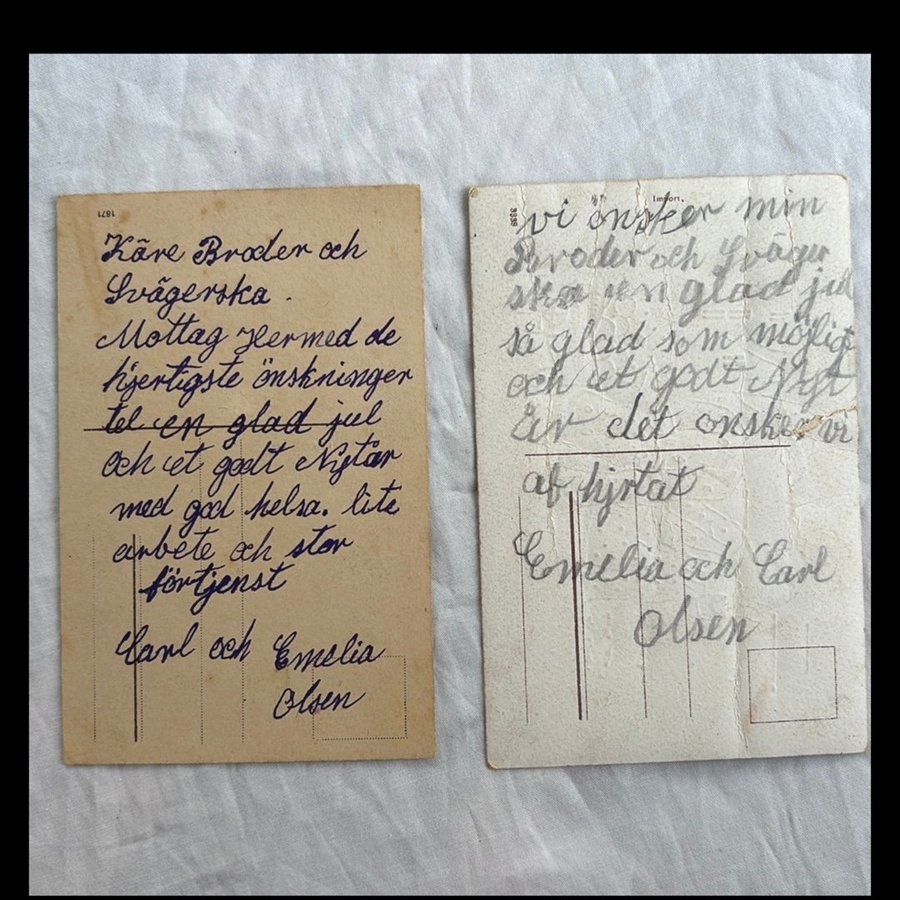 1871
Käre Broder och
Svägerska.
Mottag Hermed de
hjertigste önskninger
tel en glad jul
och et godt Nytår
med god helsa. lite
arbete och stor
förtjenst
Carl och Emelia
Olsen
Import.
3339
vi önsker min
Broder och Sväger
ska en glad jul
så glad som möjligt
och et godt Nyt
År det önsker vi
af hjrtat
Emelia och Carl
Olsen